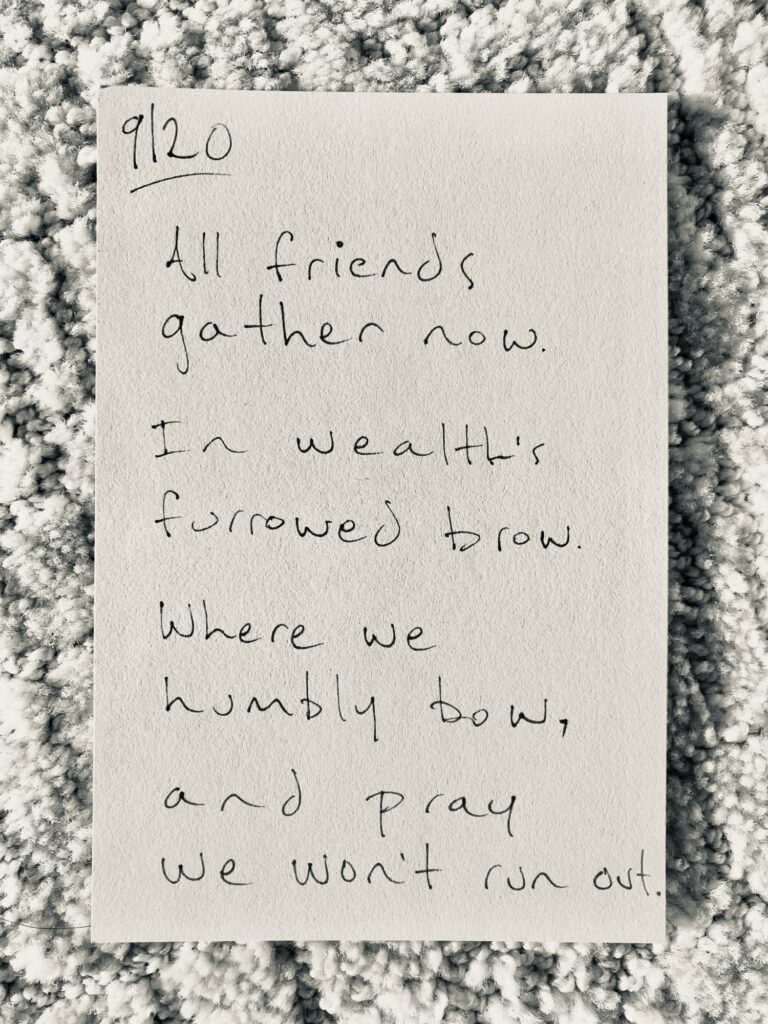 9/20
All friends
gather now.
In wealth's
furrowed brow.
Where we
humbly bow,
and pray
we won't run out.